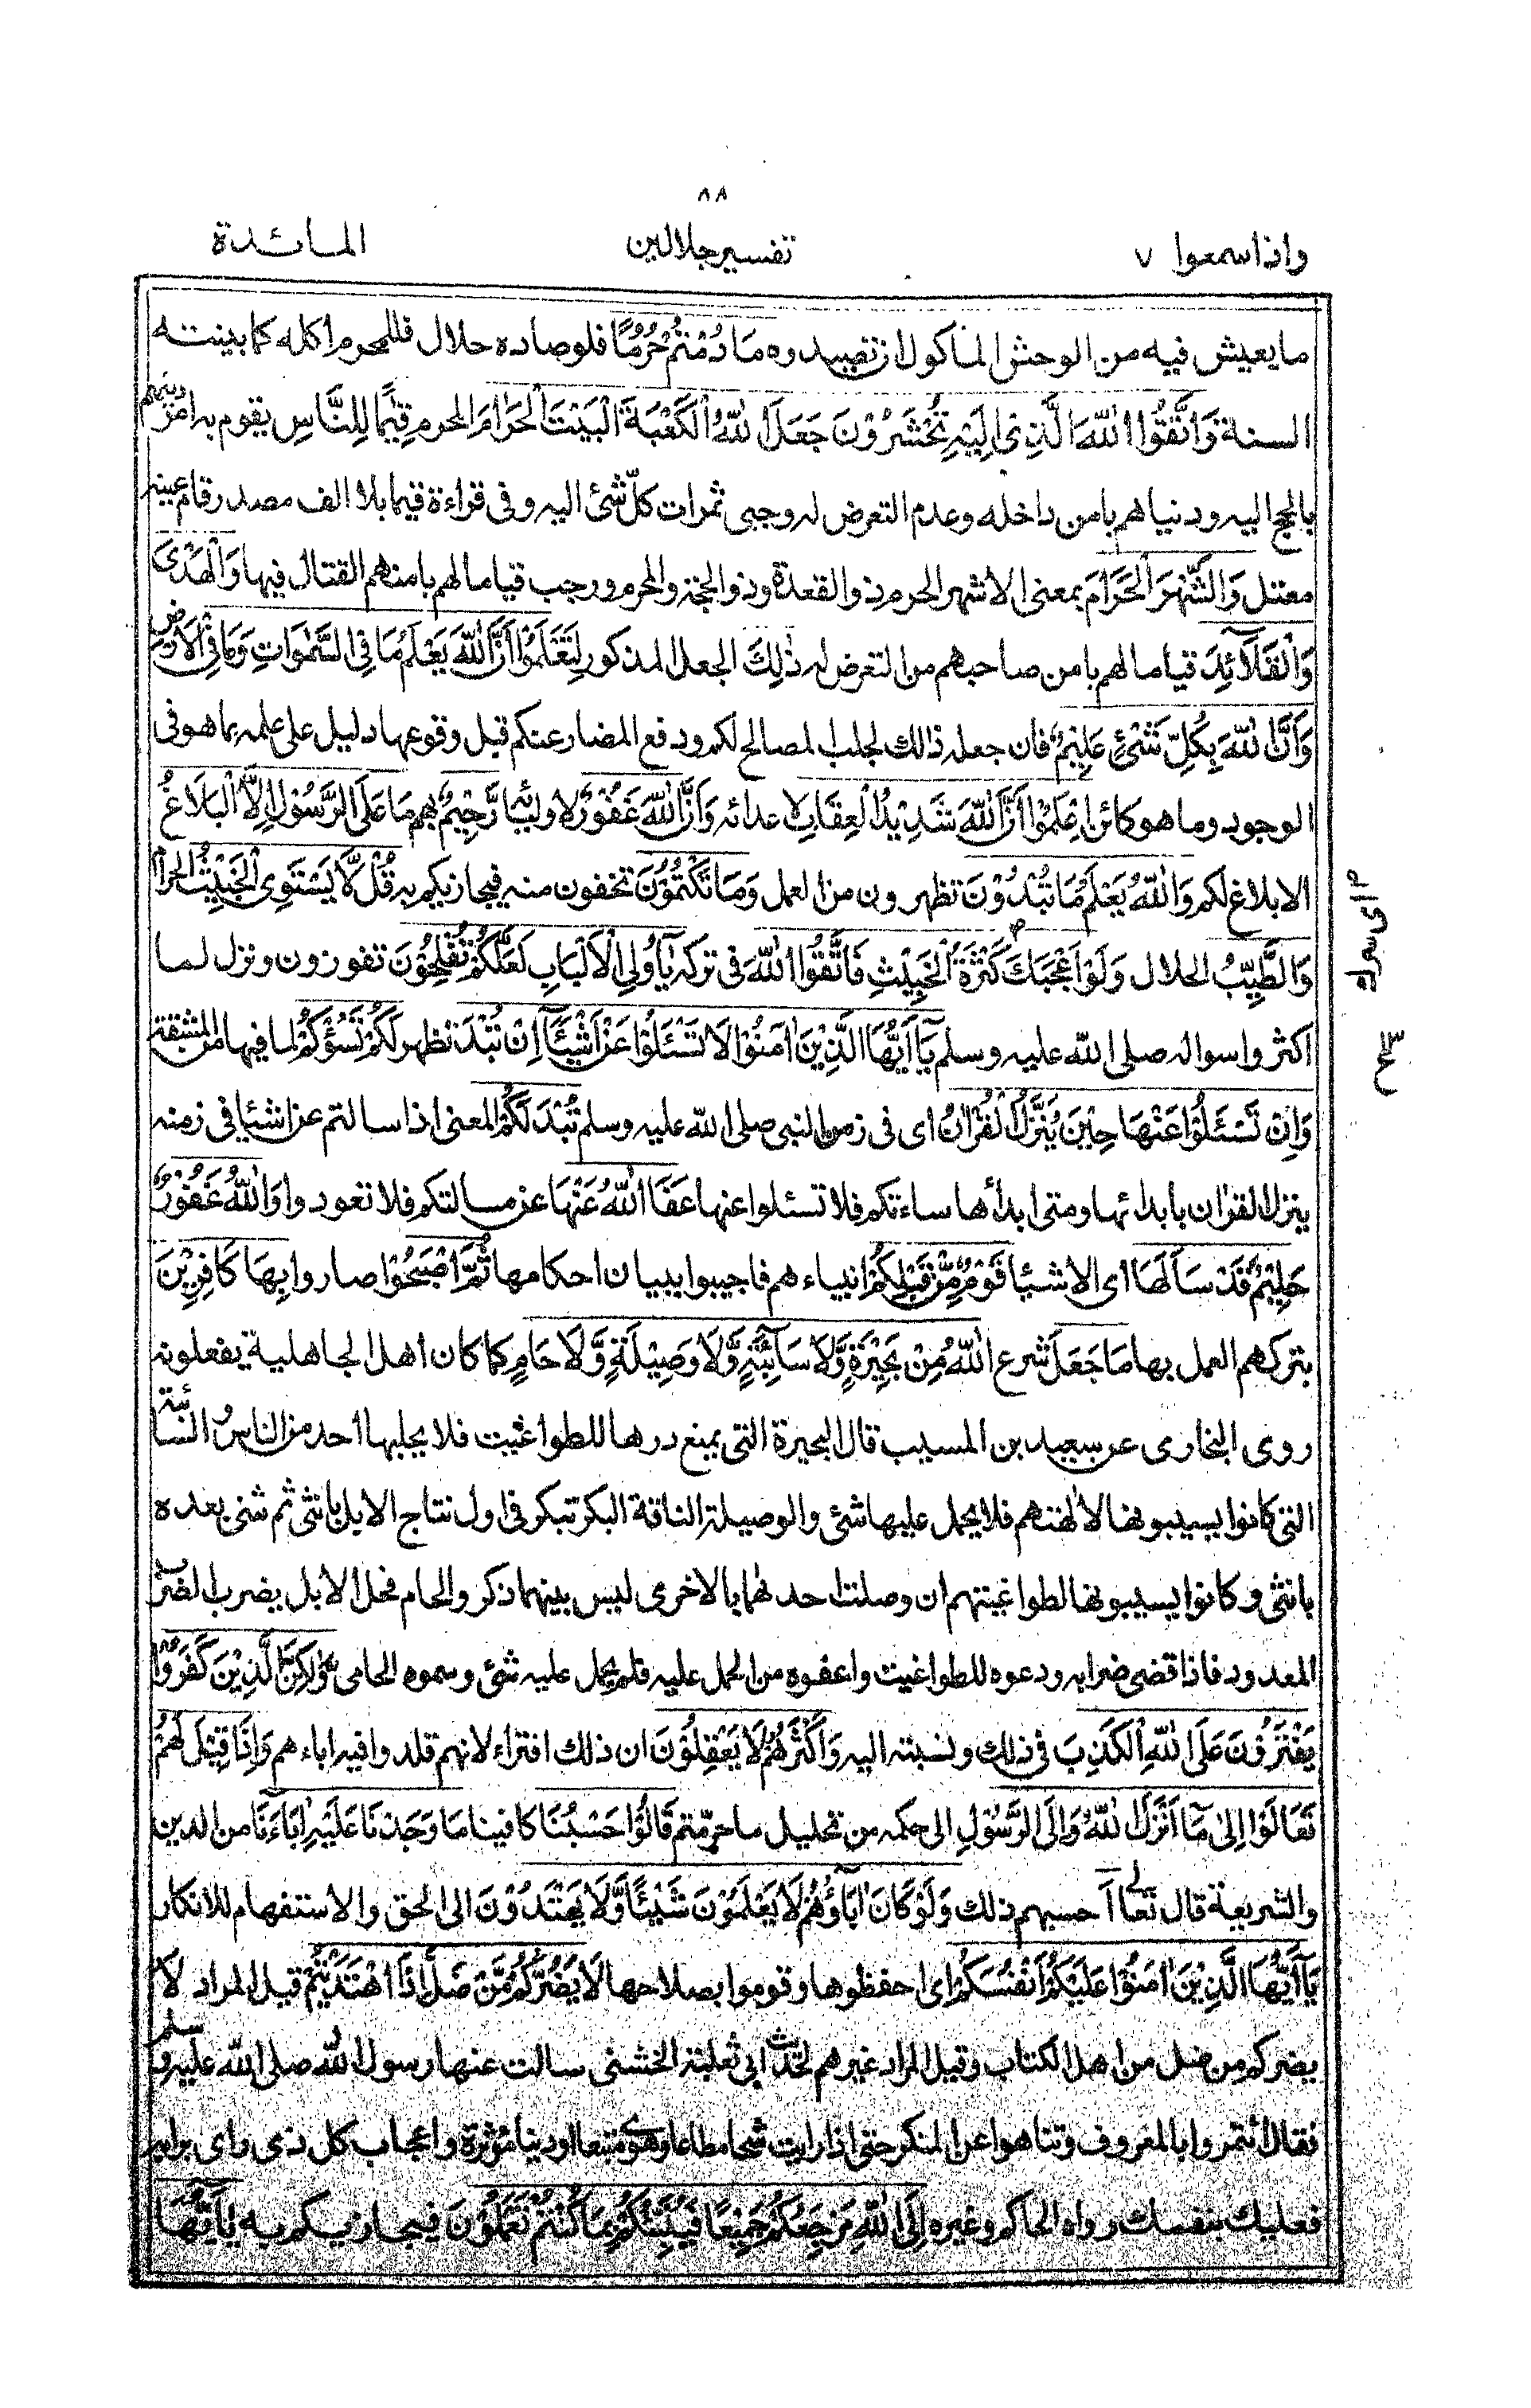 ٨٨
واذا سمعوا ٧ تفسير جلالين المائدة
ما يعيش فيه من الوحش الماكول ان تصيدوه مَا دُمْتُمْ حُرُمًا فلو صاده حلال فللمحرم اكله كما بينته
السنة وَاتَّقُوا اللّٰهَ الَّذِىْ اِلَيْهِ تُحْشَرُوْنَ جَعَلَ اللّٰهُ الْكَعْبَةَ الْبَيْتَ الْحَرَامَ المحرم قِيٰمًا لِلنَّاسِ يقوم به امر دينهم
بالحج اليه ودنياهم بامن داخله وعدم التعرض له وجبى ثمرات كلّ شئ اليه وفى قراءة قيما بلا الف مصدر قام عينه
معتل وَالشَّهْرَ الْحَرَامَ بمعنى الاشهر الحرم ذو القعدة وذو الحجة والمحرم ورجب قياما لهم بامنهم القتال فيها وَالْهَدْىَ
وَالْقَلَآئِدَ قياما لهم بامن صاحبهم من التعرض له ذٰلِكَ الجعل المذكور لِتَعْلَمُوْٓا اَنَّ اللّٰهَ يَعْلَمُ مَا فِى السَّمٰوَاتِ وَمَا فِى الْاَرْضِ
وَاَنَّ اللّٰهَ بِكُلِّ شَىْئٍ عَلِيْمٌ فان جعله ذالك لجلب المصالح لكم ودفع المضار عنكم قبل وقوعها دليل على علمه بما هو فى
الوجود وما هو كائن اِعْلَمُوْا اَنَّ اللّٰهَ شَدِيْدُ الْعِقَابِ لاعدائه وَاَنَّ اللّٰهَ غَفُوْرٌ لاوليائه رَّحِيْمٌ بهم مَا عَلَى الرَّسُوْلِ اِلَّا الْبَلَاغُ
الابلاغ لكم وَاللّٰهُ يَعْلَمُ مَا تُبْدُوْنَ تظهرون من العمل وَمَا تَكْتُمُوْنَ تخفون منه فيجازيكم به قُلْ لَّا يَسْتَوِى الْخَبِيْثُ الحرام
وَالطَّيِّبُ الحلال وَلَوْ اَعْجَبَكَ كَثْرَةُ الْخَبِيْثِ فَاتَّقُوا اللّٰهَ فى تركه يَآ اُولِى الْاَلْبَابِ لَعَلَّكُمْ تُفْلِحُوْنَ تفوزون ونزل لما
اكثروا سواله صلى الله عليه وسلم يَآ اَيُّهَا الَّذِيْنَ اٰمَنُوْا لَا تَسْئَلُوْا عَنْ اَشْيَآءَ اِنْ تُبْدَ تظهر لَكُمْ تَسُؤْكُمْ لما فيها من المشقة
وَاِنْ تَسْئَلُوْا عَنْهَا حِيْنَ يُنَزَّلُ الْقُرْاٰنُ اى فى زمن النبى صلى الله عليه وسلم تُبْدَ لَكُمْ المعنى اذا سالتم عن اشيا فى زمنه
ينزل القراٰن بابدائها ومتى ابدأها ساءتكم فلا تسئلوا عنها عَفَا اللّٰهُ عَنْهَا عن مسالتكم فلا تعودوا وَاللّٰهُ غَفُوْرٌ
حَلِيْمٌ قَدْ سَاَلَهَا اى الاشيا قَوْمٌ مِّنْ قَبْلِكُمْ انبياءهم فاجيبوا ببيان احكامها ثُمَّ اَصْبَحُوْا صاروا بِهَا كَافِرِيْنَ
بتركهم العمل بها مَا جَعَلَ شرع اللّٰهُ مِنْ بَحِيْرَةٍ وَّلَا سَآئِبَةٍ وَّلَا وَصِيْلَةٍ وَّلَا حَامٍ كما كان اهل الجاهلية يفعلونه
روى البخارى عن سعيد بن المسيب قال البحيرة التى يمنع درها للطواغيت فلا يحلبها احد من الناس و السائبة
التى كانوا يسيبونها لاٰلهتهم فلا يحمل عليها شئ والوصيلة الناقة البكر تبكر فى اول نتاج الابل بانثى ثم تثنى بعده
بانثى وكانوا يسيبونها لطواغيتهم ان وصلت احدٰهما بالاخرى ليس بينهما ذكر والحام فحل الابل يضرب الضراب
المعدود فاذا قضى ضرابه ودعوه للطواغيت واعفوه من الحمل عليه فلم يحمل عليه شئ وسموه الحامى وَلٰكِنَّ الَّذِيْنَ كَفَرُوْا
يَفْتَرُوْنَ عَلَى اللّٰهِ الْكَذِبَ فى ذلك ونسبته اليه وَاَكْثَرُهُمْ لَا يَعْقِلُوْنَ ان ذلك افتراء لانهم قلدوا فيه اباءهم وَاِذَا قِيْلَ لَهُمْ
تَعَالَوْا اِلٰى مَآ اَنْزَلَ اللّٰهُ وَاِلَى الرَّسُوْلِ الى حكمه من تحليل ما حرّمتم قَالُوْا حَسْبُنَا كافينا مَا وَجَدْنَا عَلَيْهِ اٰبَآءَنَا من الدين
والشريعة قال تعالى اَ حسبهم ذلك وَلَوْ كَانَ اٰبَآؤُهُمْ لَا يَعْلَمُوْنَ شَيْئًا وَّلَا يَهْتَدُوْنَ الى الحق والاستفهام للانكار
يَآ اَيُّهَا الَّذِيْنَ اٰمَنُوْا عَلَيْكُمْ اَنْفُسَكُمْ اى احفظوها وقوموا بصلاحها لَا يَضُرُّكُمْ مَّنْ ضَلَّ اِذَا اهْتَدَيْتُمْ قيل المراد لا
يضركم من ضل من اهل الكتاب وقيل المراد غيرهم لحديث ابى ثعلبة الخشنى سالت عنها رسول الله صلى الله عليه وسلم
فقال ائتمروا بالمعروف وتناهوا عن المنكر حتى اذا رايت شحا مطاعا وهوى متبعا ودنيا مؤثرة واعجاب كل ذى راى برايه
فعليك بنفسك رواه الحاكم وغيره اِلَى اللّٰهِ مَرْجِعُكُمْ جَمِيْعًا فَيُنَبِّئُكُمْ بِمَا كُنْتُمْ تَعْمَلُوْنَ فيجازيكم به يَآ اَيُّهَا